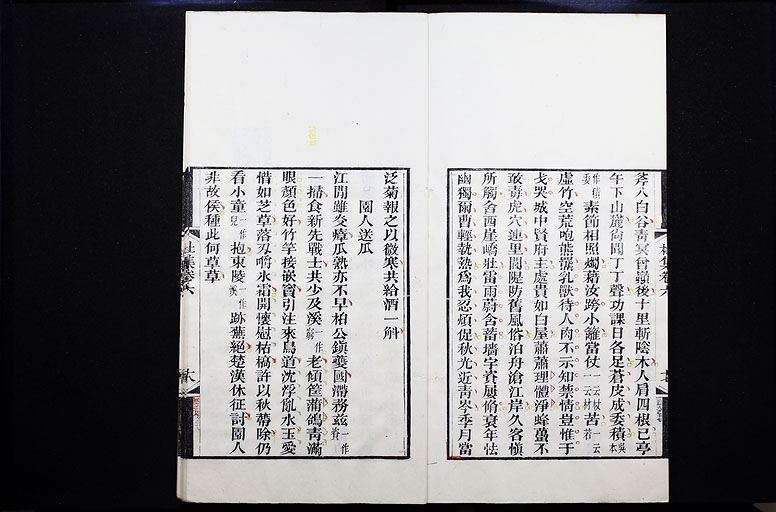 斧入白谷青冥曾巔後十里斬陰木人肩四根已亭
午下山麓尚聞丁丁聲功課日各足蒼皮成委積吳本
作積委素節相照燭藉汝跨小籬當仗一云杖一云材苦一云若
虛竹空荒咆熊羆乳獸待人肉不示知禁情豈惟干
戈哭城中賢府主處貴如白屋蕭蕭理體淨蜂蠆不
敢毒虎穴連里閭隄防舊風俗泊舟滄江岸久客慎
所觸舍西崖嶠壯雷雨蔚含蓄墻宇資屢修衰年怯
幽獨爾曹輕執熱為我忍煩促秋光近青岑季月當
泛菊報之以微寒共給酒一斛
園人送瓜
江閒雖炎瘴瓜熟亦不早柏公鎮夔國滯務茲一作資
一掃食新先戰士共少及溪一作窮老傾筐蒲鴿青滿
眼顏色好竹竿接嵌竇引注來鳥道沈浮亂水玉愛
惜如芝草落刃嚼氷霜開懷慰枯槁許以秋蔕除仍
看小童一作兒抱東陵一作溪跡蕪絕楚漢休征討園人
非故侯種此何草草
杜集卷六